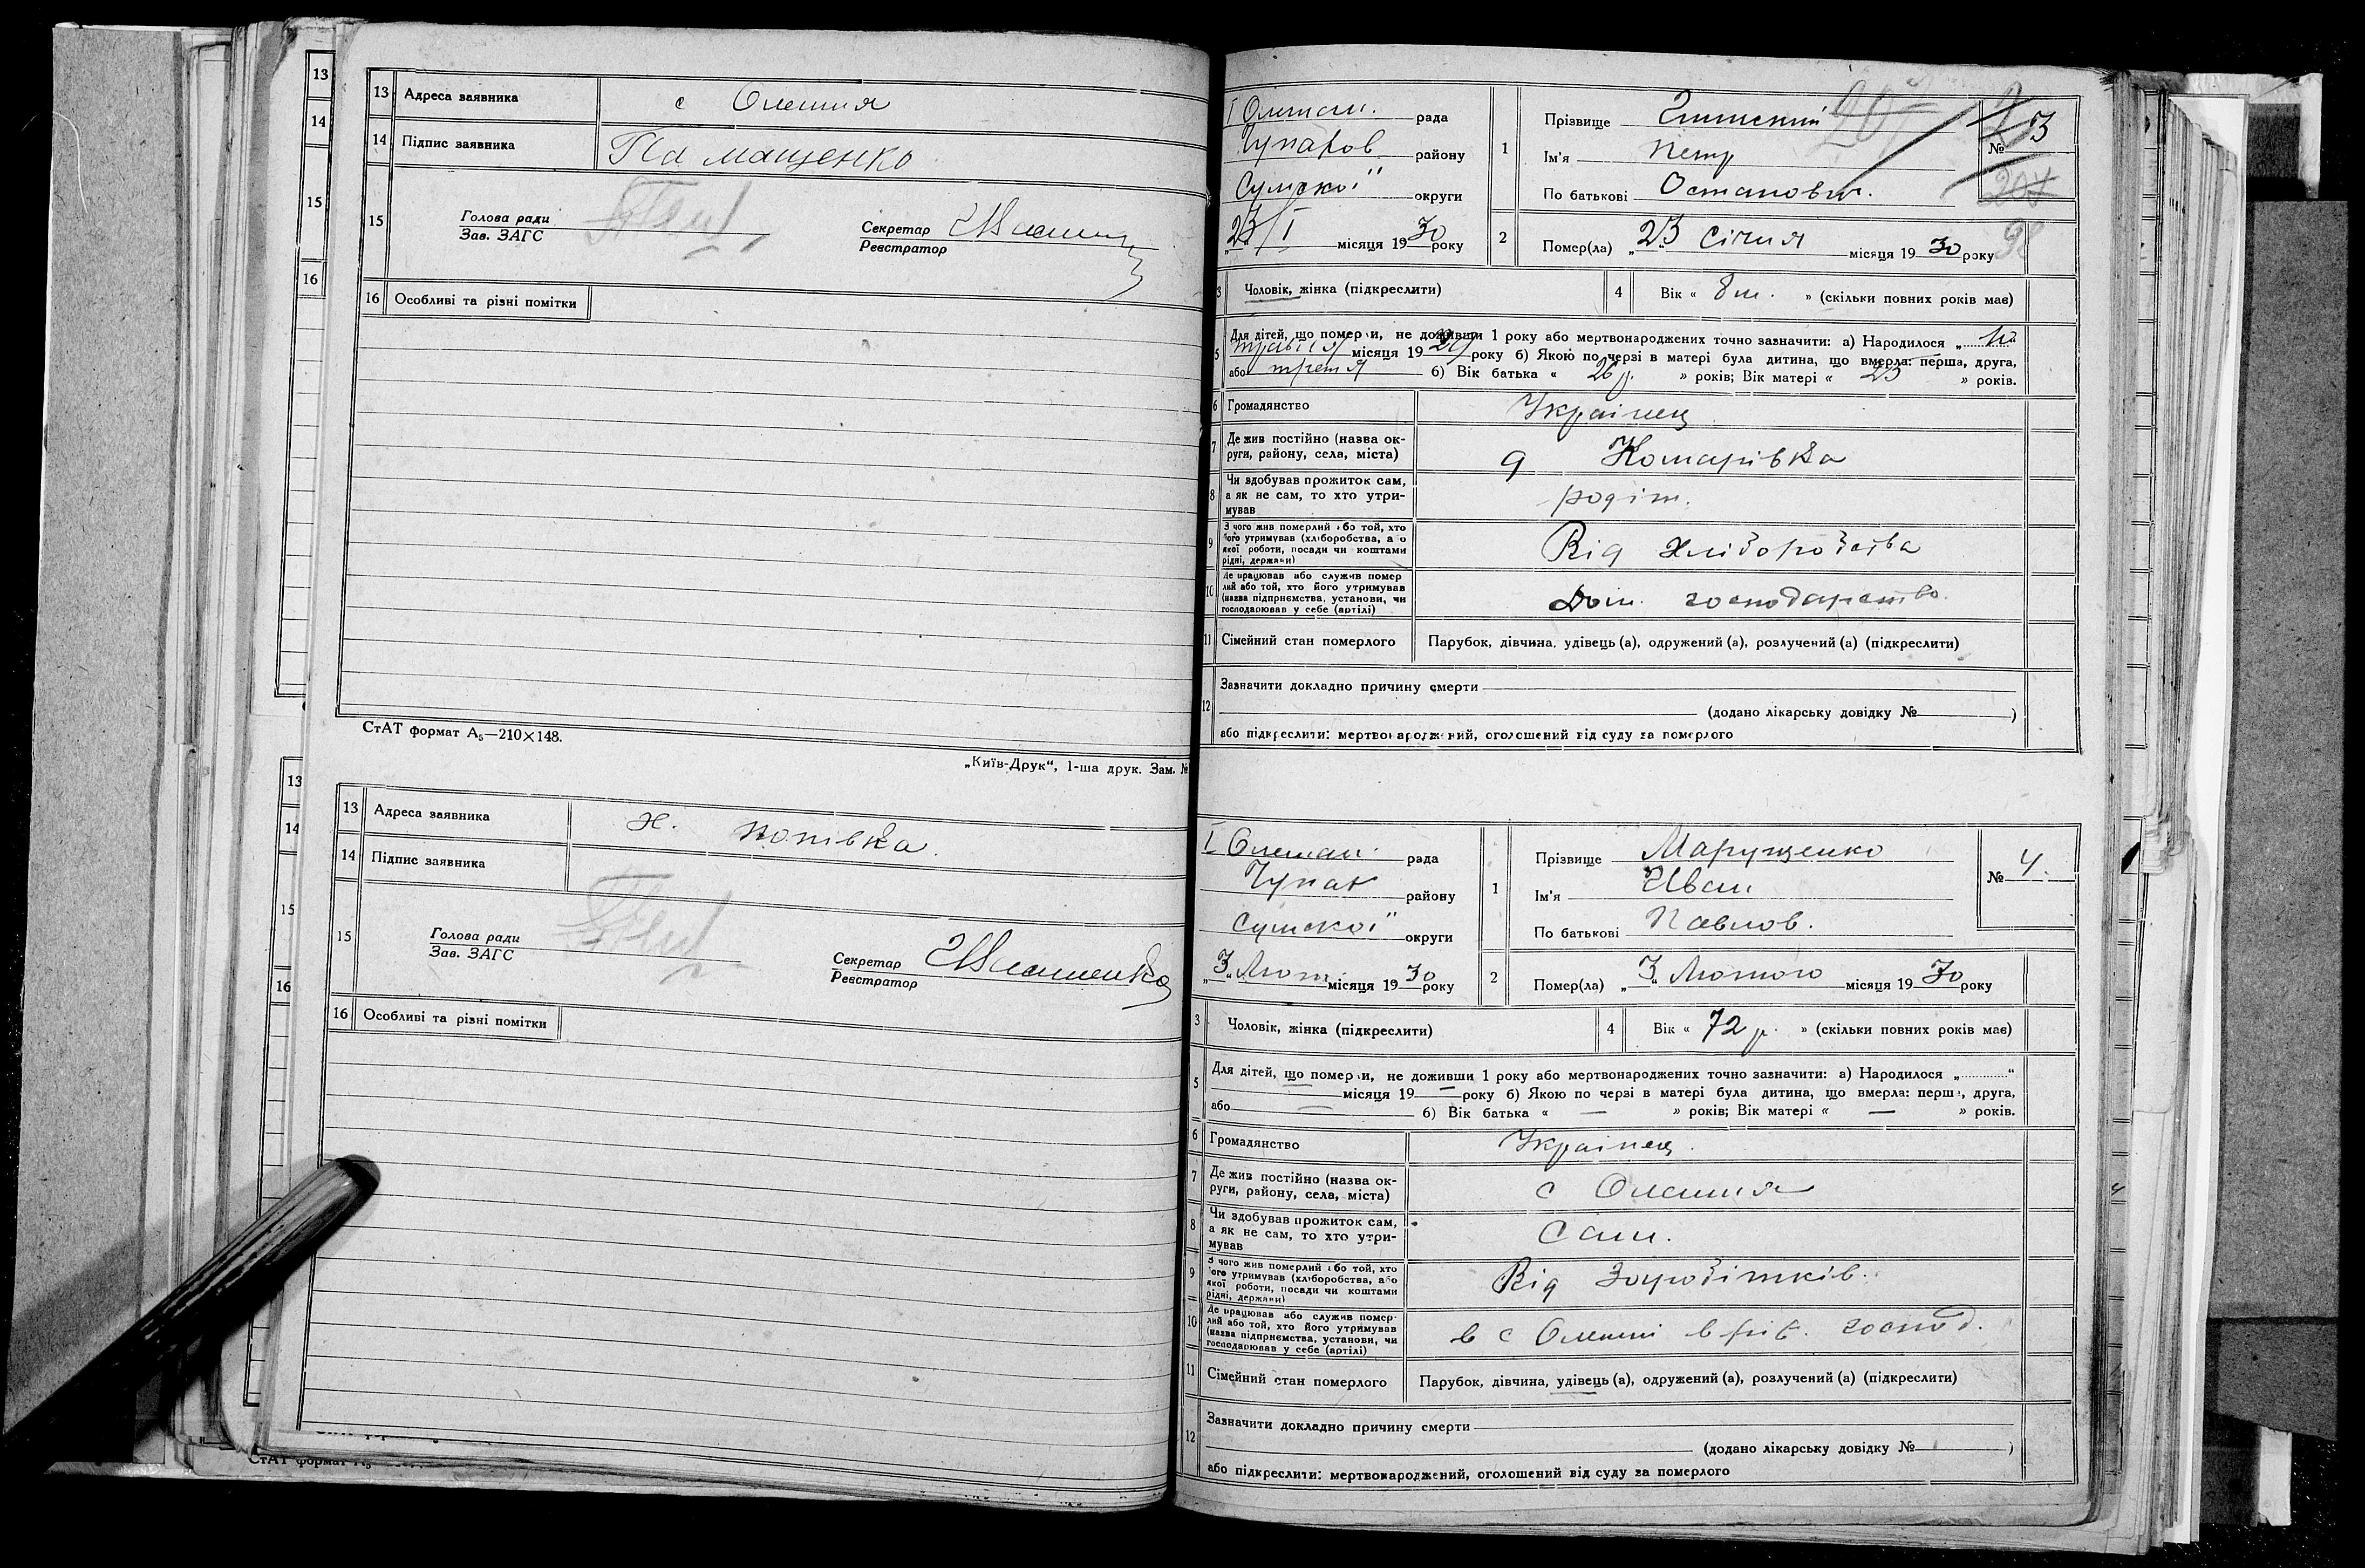 13
14
15
16
13
14
15
16
13 Адреса заявника с Олешня
14 Підпис заявника
15 Голова ради
Зав. ЗАГС
Секретар
Реєстратор
16 Особливі та різні помітки
СтАТ формат А₅—210×148.
„Київ-Друк“, 1-ша друк. Зам. №
13 Адреса заявника х. Попівка
14 Підпис заявника
15 Голова ради
Зав. ЗАГС
Секретар Ілляшенко
Реєстратор
16 Особливі та різні помітки
СтАТ формат А₅
І Олешан. рада
Чупахов району
Сумської округи
23/І місяця 1930 року
1 Прізвище
Ім'я Петр
По батькові Остапович.
№ 3
207
2 Помер(ла) „23 Січня місяця 1930 року
3 Чоловік, жінка (підкреслити)
4 Вік « 8 м. » (скільки повних років має)
5 Для дітей, що померли, не доживши 1 року або мертвонароджених точно зазначити: а) Народилося „
травня місяця 1929 року б) Якою по черзі в матері була дитина, що вмерла: перша, друга,
або третя б) Вік батька « 26 р. » років; Вік матері « 23 » років.
6 Громадянство Українец
7 Де жив постійно (назва округи, району, села, міста) д Комарівка
8 Чи здобував прожиток сам,
а як не сам, то хто утри-
мував родіт.
9 З чого жив померлий або той, хто
його утримував (хліборобства, або
якої роботи, посади чи коштами
рідні, держави) Від хліборобства
10 Де працював або служив помер
лий або той, хто його утримував
(назва підприємства, установи, чи
господарював у себе (артілі) Дом. господарство.
11 Сімейний стан померлого Парубок, дівчина, удівець (а), одружений (а), розлучений (а) (підкреслити)
12 Зазначити докладно причину смерти
(додано лікарську довідку № )
або підкреслити: мертвонароджений, оголошений від суду за померлого
І Олешан. рада
Чупах району
Сумської округи
„3“ Лют місяця 1930 року
1 Прізвище Марущенко
Ім'я Иван
По батькові Павлов.
№ 4.
2 Помер(ла) „3“ Лютого місяця 1930 року
3 Чоловік, жінка (підкреслити)
4 Вік « 72 р. » (скільки повних років має)
5 Для дітей, що померли, не доживши 1 року або мертвонароджених точно зазначити: а) Народилося „ “
місяця 19— року б) Якою по черзі в матері була дитина, що вмерла: перша, друга,
або — б) Вік батька « — » років; Вік матері « — » років.
6 Громадянство Українец.
7 Де жив постійно (назва ок-
руги, району, села, міста) с Олешня
8 Чи здобував прожиток сам,
а як не сам, то хто утри-
мував Сам.
9 З чого жив померлий або той, хто
його утримував (хліборобства, або
якої роботи, посади чи коштами
рідні, держави) Від Заробітків.
10 Де працював або служив помер-
лий або той, хто його утримував
(назва підприємства, установи, чи
господарював у себе (артілі) в с Олешні в господ.
11 Сімейний стан померлого Парубок, дівчина, удівець (а), одружений (а), розлучений (а) (підкреслити)
12 Зазначити докладно причину смерти
(додано лікарську довідку № )
або підкреслити: мертвонароджений, оголошений від суду за померлого